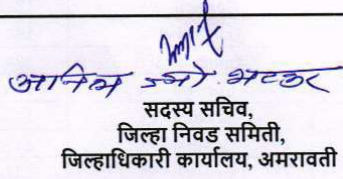 अनिल ज्ञो. भटकर
सदस्य सचिव,
जिल्हा निवड समिती,
जिल्हाधिकारी कार्यालय, अमरावती